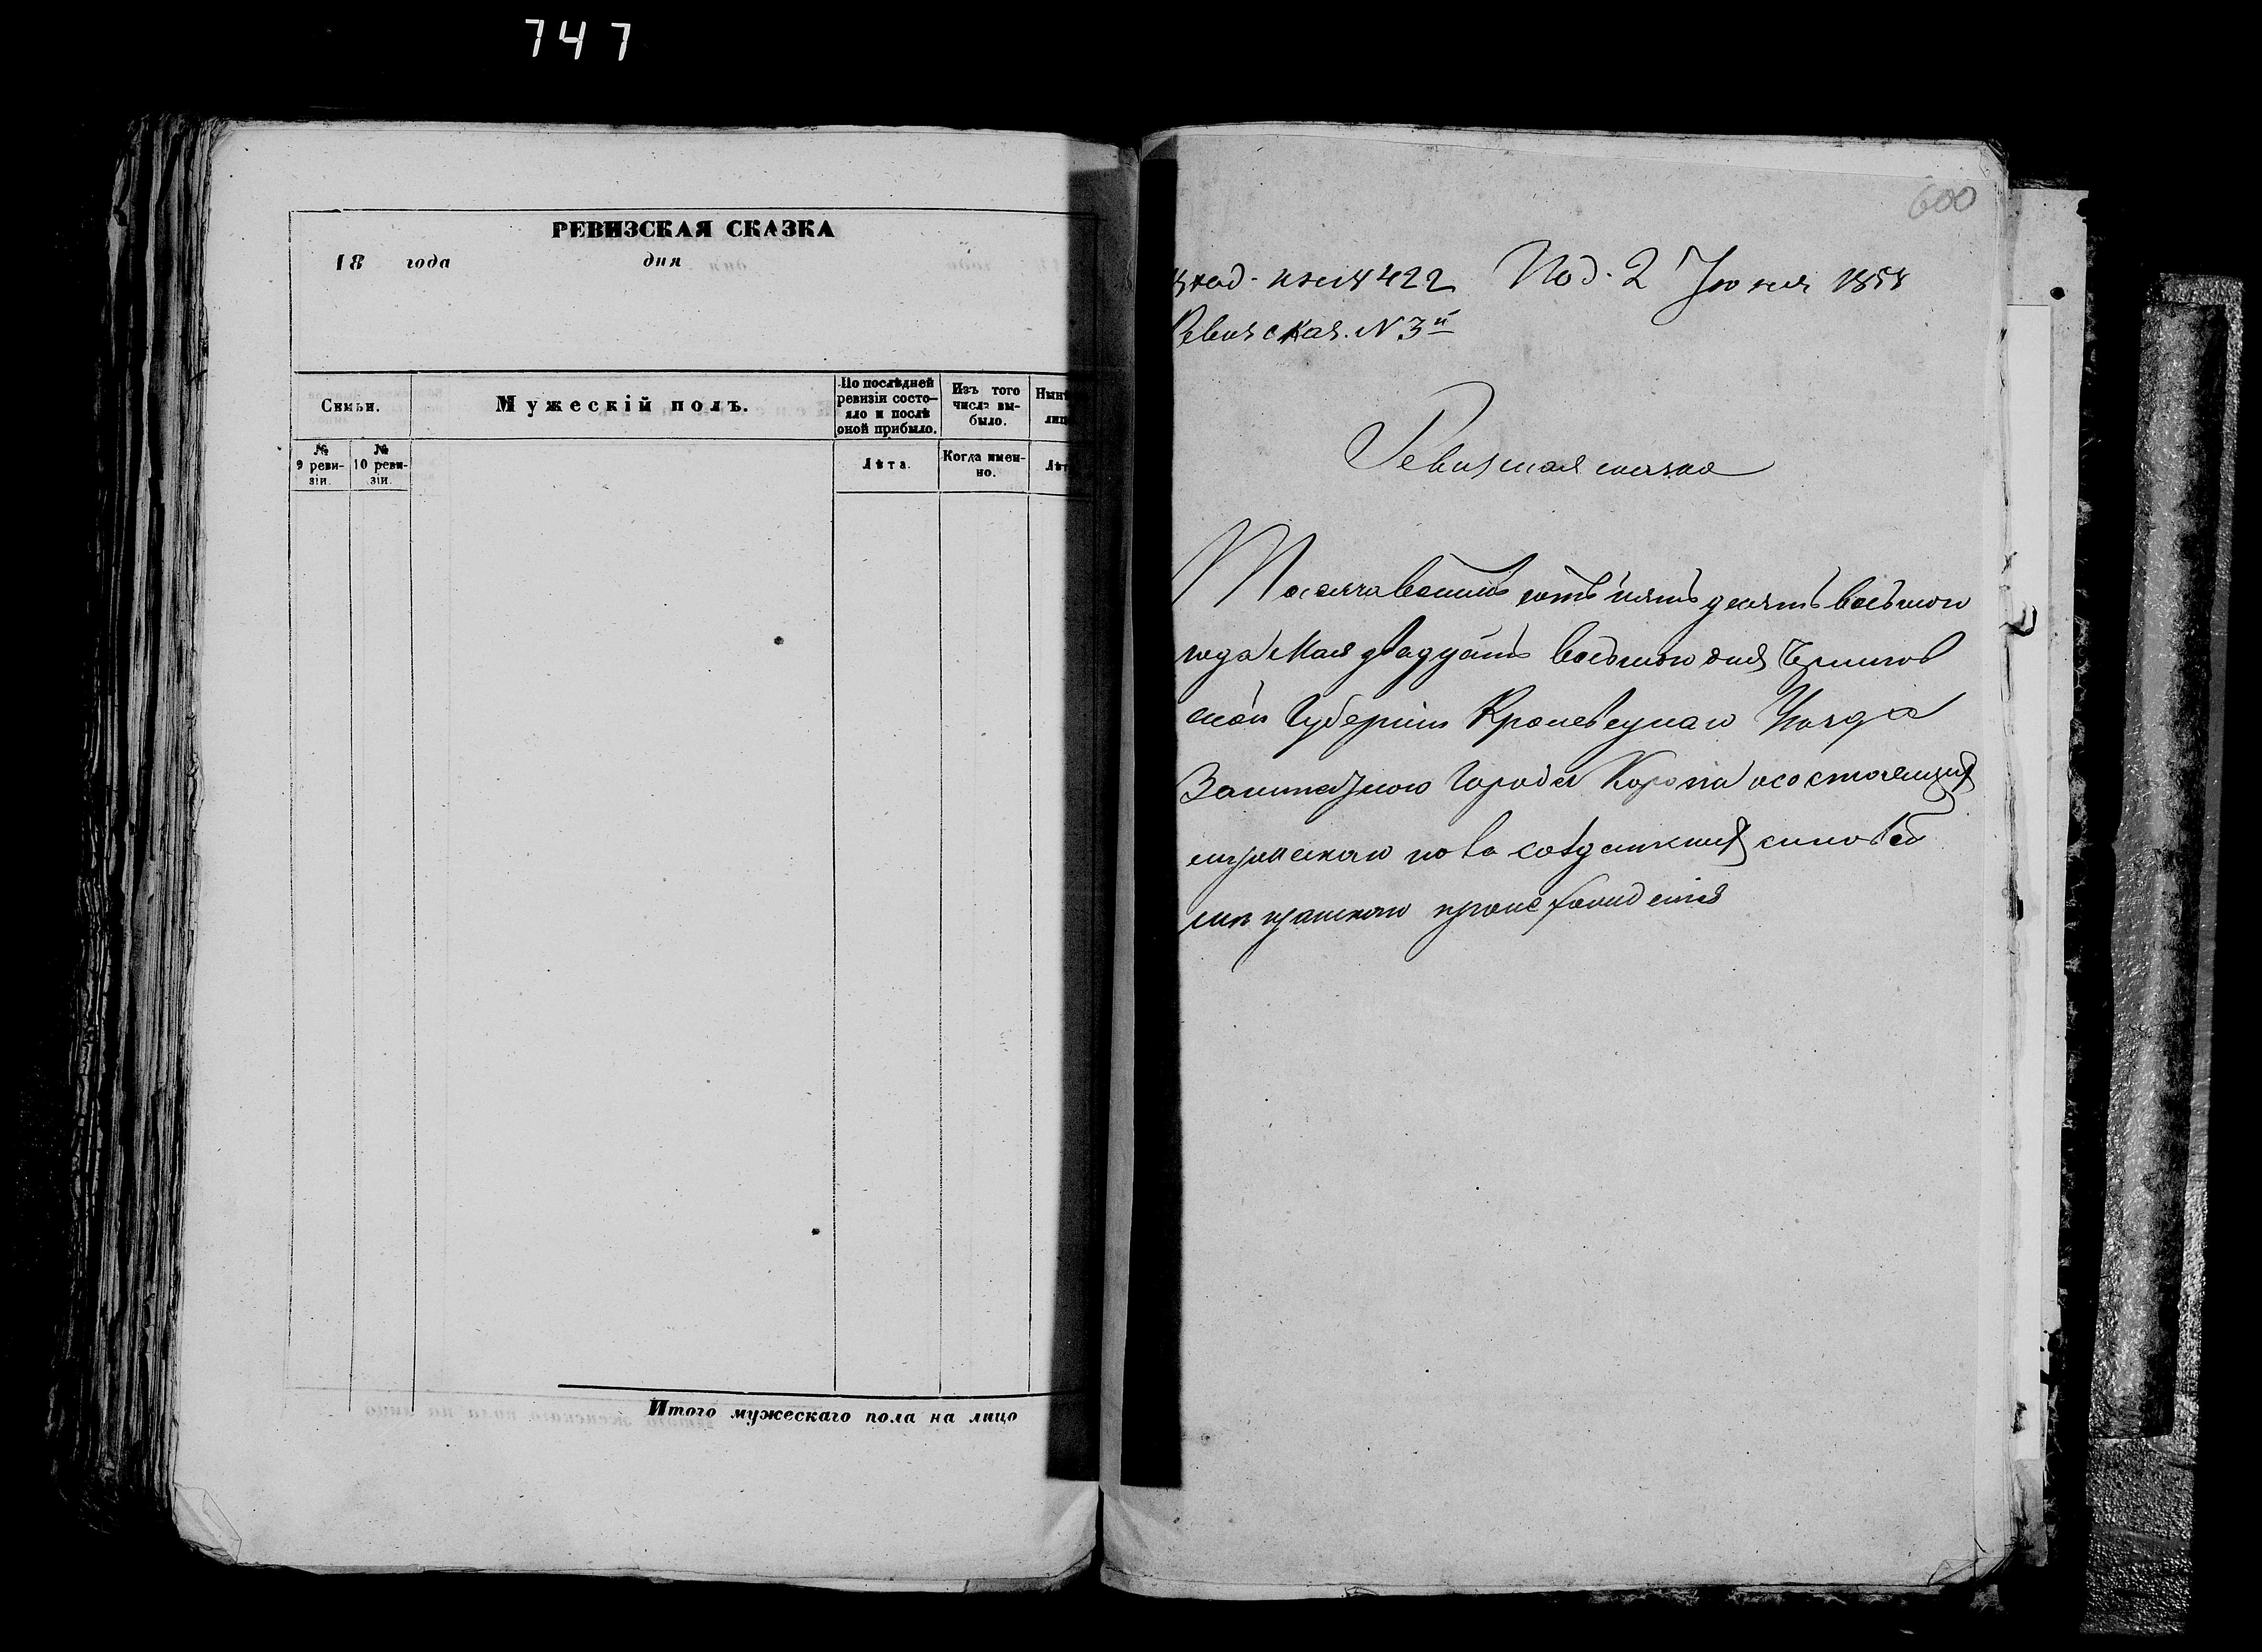 747
РЕВИЗСКАЯ СКАЗКА
18 года дня
Семьи.
Мужескій полъ.
По послѣдней ревизіи состо-
яло и послѣ
оной прибыло.
Изъ того
числа вы-
было.
№
9 реви-
зіи.
№
10 реви-
зіи.
Лѣта.
Когда имен-
но.
Итого мужескаго пола на лицо
600
422 Под. 2 Іюня 1858
Ревизская. N 3й
Ревизская сказка
Тысяча восемь сотъ пятьдесятъ восьмого
года Мая двадцать восьмого дня Чернигов
ской Губерніи Кролевецкаго Уезда
Заштатного Города Коропа о состоящих
мужеского пола солдатских сыновей
происхождения